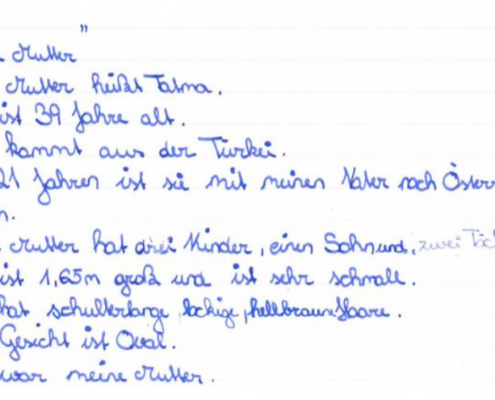 "
Mutter"
Mutter heißt Fatma.
ist 39 Jahre alt.
kommt aus der Türkei.
21 Jahren ist sie mit meinen Vater nach Öster
n.
Mutter hat drei Kinder, einen Sohn und, zwei Töch
ist 1,65m groß und ist sehr schmall.
hat schulterlange, lockige, hellbraune Haare.
Gesicht ist Oval.
war meine Mutter.